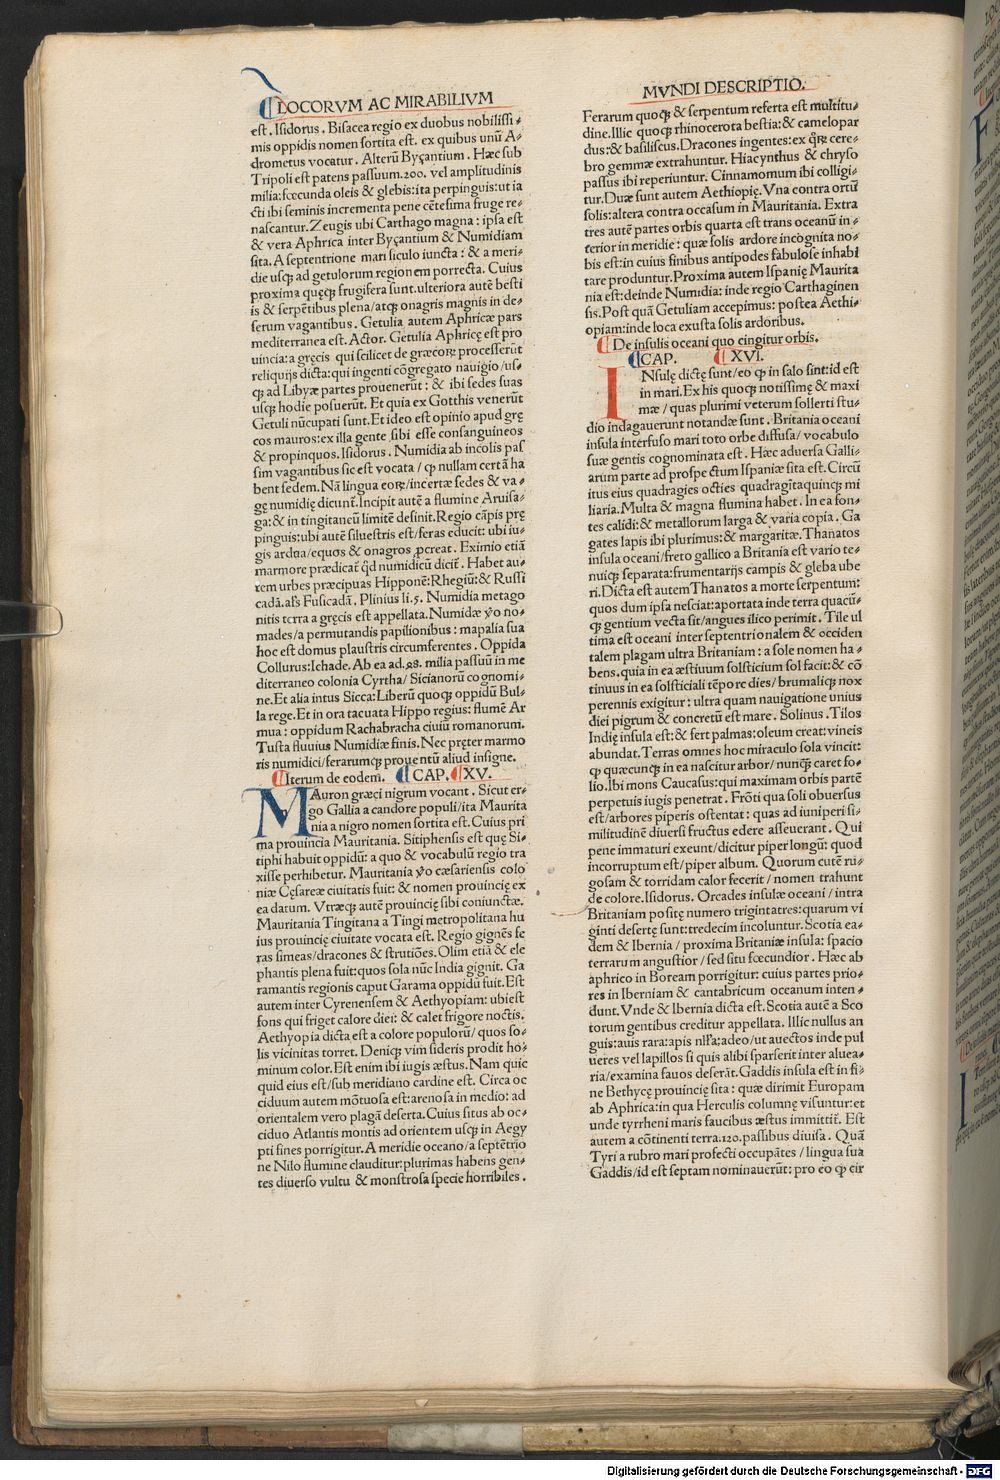 LOCORVM AC MIRABILIVM
est. Isidorus. Bisacea regio ex duobus nobilissi-
mis oppidis nomen sortita est. ex quibus unū A-
drometus vocatur. Alterū Byçantium. Hæc sub
Tripoli est patens passuum.200. vel amplitudinis
milia: fœcunda oleis & glebis: ita perpinguis: ut ia
cti ibi seminis incrementa pene cētesima fruge re-
nascantur. Zeugis ubi Carthago magna: ipsa est
& vera Aphrica inter Byçantium & Numidiam
sita. A septentrione mari siculo iuncta: & a meri-
die usqꝫ ad getulorum regionem porrecta. Cuius
proxima quęqꝫ frugifera sunt. ulteriora autē besti
is & serpētibus plena/atqꝫ onagris magnis in de-
serum vagantibus. Getulia autem Aphricæ pars
mediterranea est. Actor. Getulia Aphricę est pro
uincia: a gręcis qui scilicet de græcoꝝ processerūt
reliquijs dicta: qui ingenti cōgregato nauigio/us-
qꝫ ad Libyæ partes prouenerūt: & ibi sedes suas
usqꝫ hodie posuerūt. Et quia ex Gotthis venerūt
Getuli nūcupati sunt. Et ideo est opinio apud grę
cos mauros: ex illa gente sibi esse consanguineos
& propinquos. Isidorus. Numidia ab incolis pas
sim vagantibus sic est vocata / qꝫ nullam certā ha
bent sedem. Nā lingua eoꝝ/incertæ sedes & va-
gę numidię dicunt̃. Incipit autē a flumine Aruisa-
ga: & in tingitaneū limitē desinit. Regio cāpis prę
pinguis: ubi autē siluestris est/feras educit: ubi iu-
gis ardua/equos & onagros ꝓcreat. Eximio etiā
marmore prædicat̃ qd̃ numidicū dicit̃. Habet au-
tem urbes præcipuas Hipponē: Rhegiū: & Russi
cadā. als̃ Fusicadā. Plinius li.5. Numidia metago
nitis terra a gręcis est appellata. Numidæ v̊o no-
mades/a permutandis papilionibus: mapalia sua
hoc est domus plaustris circumferentes. Oppida
Collurus: Ichade. Ab ea ad.48. milia passuū in me
diterraneo colonia Cyrtha/ Sicianorū cognomi-
ne. Et alia intus Sicca: Liberū quoqꝫ oppidū Bul-
la rege. Et in ora tacuata Hippo regius: flumē Ar
mua: oppidum Rachabracha ciuiū romanorum.
Tusta fluuius Numidiæ finis. Nec pręter marmo
ris numidici/ferarumqꝫ prouentū aliud insigne.
Iterum de eodem. CAP. XV.
MAuron græci nigrum vocant. Sicut er-
go Gallia a candore populi/ita Maurita
nia a nigro nomen sortita est. Cuius pri
ma prouincia Mauritania. Sitiphensis est quę Si-
tiphi habuit oppidū: a quo & vocabulū regio tra
xisse perhibetur. Mauritania v̊o cæsariensis colo
niæ Cęsareæ ciuitatis fuit: & nomen prouincię ex
ea datum. Vtræqꝫ autē prouincię sibi coniunctæ.
Mauritania Tingitana a Tingi metropolitana hu
ius prouincię ciuitate vocata est. Regio gignēs fe
ras simeas/dracones & strutiōes. Olim etiā & ele
phantis plena fuit: quos sola nūc India gignit. Ga
ramantis regionis caput Garama oppidū fuit. Est
autem inter Cyrenensem & Aethyopiam: ubi est
fons qui friget calore diei: & calet frigore noctis.
Aethyopia dicta est a colore populorū/ quos so-
lis vicinitas torret. Deniqꝫ vim sideris prodit ho-
minum color. Est enim ibi iugis æstus. Nam quic
quid eius est/sub meridiano cardine est. Circa oc
ciduum autem mōtuosa est: arenosa in medio: ad
orientalem vero plagā deserta. Cuius situs ab oc-
ciduo Atlantis montis ad orientem usqꝫ in Aegy
pti fines porrigitur. A meridie oceano/a septētrio
ne Nilo flumine clauditur: plurimas habens gen-
tes diuerso vultu & monstrosa specie horribiles.
MVNDI DESCRIPTIO.
Ferarum quoqꝫ & serpentum referta est multitu-
dine. Illic quoqꝫ rhinocerota bestia: & camelopar
dus: & basiliscus. Dracones ingentes: ex qꝝ cere-
bro gemmæ extrahuntur. Hiacynthus & chryso
passus ibi reperiuntur. Cinnamomum ibi colligi-
tur. Duæ sunt autem Aethiopię. Vna contra ortū
solis: altera contra occasum in Mauritania. Extra
tres autē partes orbis quarta est trans oceanū in-
terior in meridie: quæ solis ardore incognita no-
bis est: in cuius finibus antipodes fabulose inhabi
tare produntur. Proxima autem Ispanię Maurita
nia est: deinde Numidia: inde regio Carthaginen
sis. Post quā Getuliam accepimus: postea Aethi-
opiam: inde loca exusta solis ardoribus.
De insulis oceani quo cingitur orbis.
CAP. XVI.
INsulę dictę sunt/eo qꝫ in salo sint: id est
in mari. Ex his quoqꝫ notissimę & maxi
mæ / quas plurimi veterum sollerti stu-
dio indagauerunt notandæ sunt. Britania oceani
insula interfuso mari toto orbe diffusa/ vocabulo
suæ gentis cognominata est. Hæc aduersa Galli-
arum parte ad prospectum Ispaniæ sita est. Circū
itus eius quadragies octies quadragītaquinqꝫ mi
liaria. Multa & magna flumina habet. In ea fon-
tes calidi: & metallorum larga & varia copia. Ga
gates lapis ibi plurimus: & margaritæ. Thanatos
insula oceani/freto gallico a Britania est vario te-
nuiqꝫ separata: frumentarijs campis & gleba ube
ri. Dicta est autem Thanatos a morte serpentum:
quos dum ipsa nesciat: aportata inde terra quacū-
qꝫ gentium vecta sit/angues ilico perimit. Tile ul
tima est oceani inter septentrionalem & occiden
talem plagam ultra Britaniam: a sole nomen ha-
bens. quia in ea æstiuum solsticium sol facit: & cō
tinuus in ea solsticiali tēpore dies/ brumaliqꝫ nox
perennis exigitur: ultra quam nauigatione unius
diei pigrum & concretū est mare. Solinus. Tilos
Indię insula est: & fert palmas: oleum creat: vineis
abundat. Terras omnes hoc miraculo sola vincit:
qꝫ quæcunqꝫ in ea nascitur arbor/ nunqꝫ caret fo-
lio. Ibi mons Caucasus: qui maximam orbis partē
perpetuis iugis penetrat. Frōti qua soli obuersus
est/arbores piperis ostentat: quas ad iuniperi si-
militudinē diuersi fructus edere asseuerant. Qui
pene immaturi exeunt/dicitur piper longū: quod
incorruptum est/piper album. Quorum cutē ru-
gosam & torridam calor fecerit/ nomen trahunt
de colore. Isidorus. Orcades insulæ oceani / intra
Britaniam positę numero trigintatres: quarum vi
ginti desertę sunt: tredecim incoluntur. Scotia ea-
dem & Ibernia / proxima Britaniæ insula: spacio
terrarum angustior / sed situ fœcundior. Hæc ab
aphrico in Boream porrigitur: cuius partes prio-
res in Iberniam & cantabricum oceanum inten-
dunt. Vnde & Ibernia dicta est. Scotia autē a Sco
torum gentibus creditur appellata. Illic nullus an
guis: auis rara: apis nl̃la: adeo/ut auectos inde pul
ueres vel lapillos si quis alibi sparserit inter aluea-
ria/examina fauos deserāt. Gaddis insula est in fi-
ne Bethycę prouincię sita: quæ dirimit Europam
ab Aphrica: in qua Herculis columnę visuntur: et
unde tyrrheni maris faucibus æstus immittit̃. Est
autem a cōtinenti terra.120. passibus diuisa. Quā
Tyri a rubro mari profecti occupātes/ lingua sua
Gaddis/id est septam nominauerūt: pro eo qꝫ cir
Digitalisierung gefördert durch die Deutsche Forschungsgemeinschaft - DFG